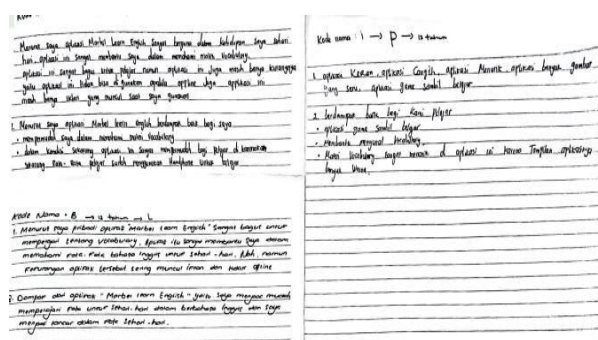 Menurut saya aplikasi Marbel Learn English sangat berguna dalam kehidupan saya sehari
hari, aplikasi ini sangat membantu saya dalam memahami materi Vocabulary.
aplikasi ini sangat bagus untuk pelajar namun aplikasi ini juga masih banyak kurangnya
yaitu aplikasi ini tidak bisa di gunakan apabila offline juga aplikasi ini
masih banyak iklan yang muncul saat saya gunakan
2. Menurut saya aplikasi Marbel learn english berdampak baik bagi saya
• mempermudah saya dalam memahami materi Vocabulary
• dalam kondisi sekarang aplikasi ini sangat mempermudah bagi pelajar di karenakan
sekarang rata-rata pelajar sudah menggunakan Handphone untuk belajar
Kode Nama : B → 12 tahun → L
1. Menurut saya pribadi aplikasi "Marbel learn English" sangat bagus untuk
mempelajari tentang Vocabulary, aplikasi itu sangat membantu saya dalam
memahami kata-kata bahasa inggris untuk sehari-hari. Nah, namun
kekurangan aplikasi tersebut sering muncul iklan dan tidak offline
2. Dampak dari aplikasi "Marbel learn English" yaitu saya menjadi mudah
mempelajari kata untuk sehari-hari dalam berbahasa inggris dan saya
menjadi lancar dalam kata sehari-hari.
Kode nama : i → P → 12 tahun
1. aplikasi Keren, aplikasi Canggih, aplikasi Menarik, aplikasi banyak gambar
yang seru, aplikasi game sambil belajar
2. berdampak baik bagi kami pelajar
• aplikasi game sambil belajar
• Membantu mengenal vocabulary.
• Materi Vocabulary sangat menarik di aplikasi ini karena Tampilan aplikasinya